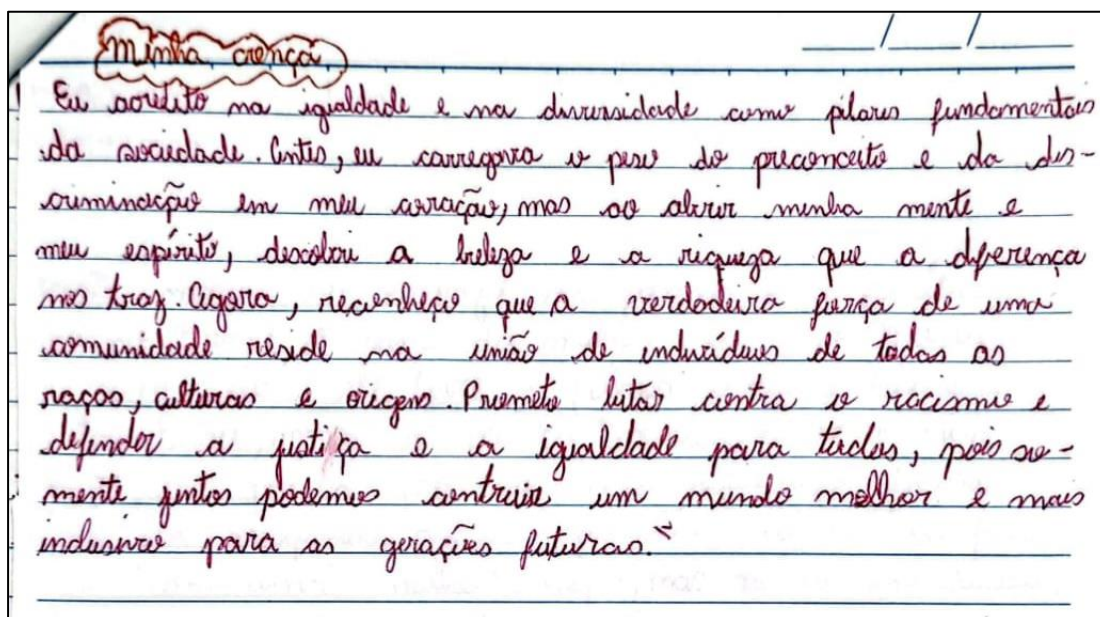 Minha crença
Eu acredito na igualdade e na diversidade como pilares fundamentais
da sociedade. Antes, eu carregava o peso do preconceito e da dis-
criminação em meu coração, mas ao abrir minha mente e
meu espírito, descobri a beleza e a riqueza que a diferença
nos traz. Agora, reconheço que a verdadeira força de uma
comunidade reside na união de indivíduos de todas as
raças, culturas e origens. Prometo lutar contra o racismo e
defender a justiça e a igualdade para todos, pois so-
mente juntos podemos contruir um mundo melhor e mais
inclusivo para as gerações futuras.